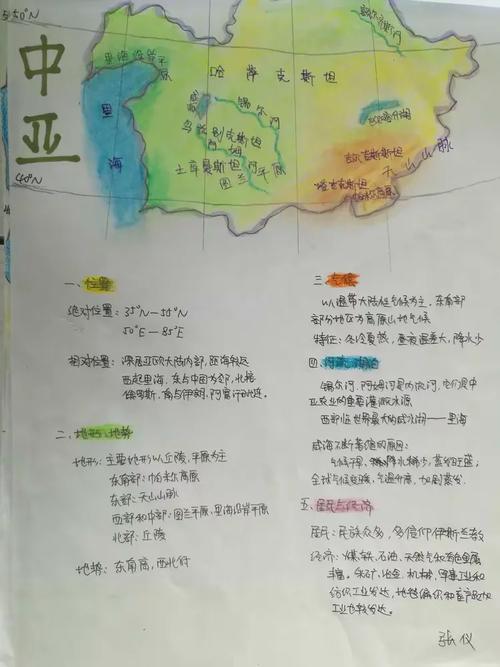 50°N
中亚
40°N
里海沿岸平原
哈萨克斯坦
里海
咸海
锡尔河
乌兹别克斯坦
阿姆河
土库曼斯坦
图兰平原
巴尔喀什湖
吉尔吉斯斯坦
天山山脉
塔吉克斯坦
帕米尔高原
一、位置
绝对位置：35°N—55°N
50°E—85°E
相对位置：深居亚欧大陆内部，
西起里海，东与中国为邻，北接
俄罗斯，南与伊朗，阿富汗毗连。
二、地形、地势
地形：主要地形以丘陵，平原为主
东南部：帕米尔高原
东部：天山山脉
西部和中部：图兰平原，里海沿岸平原
北部：丘陵
地势：东南高，西北低
三、气候
以温带大陆性气候为主，东南部
部分地区为高原山地气候
特征：冬冷夏热，昼夜温差大，降水少
四、河流、湖泊
锡尔河，阿姆河是内流河，它们是中
亚农业的重要灌溉水源
西部临世界最大的咸水湖——里海
咸海不断萎缩的原因：
气候干旱，降水稀少，蒸发旺盛；
全球气候变暖，气温升高，加剧蒸发.
五、居民与经济
居民：民族众多，多信仰伊斯兰教
经济：煤.铁、石油、天然气和有色金属
丰富。采矿、冶金、机械、军事工业和
纺织工业发达，地毯编织和畜产品加
工也较发达。
张仪